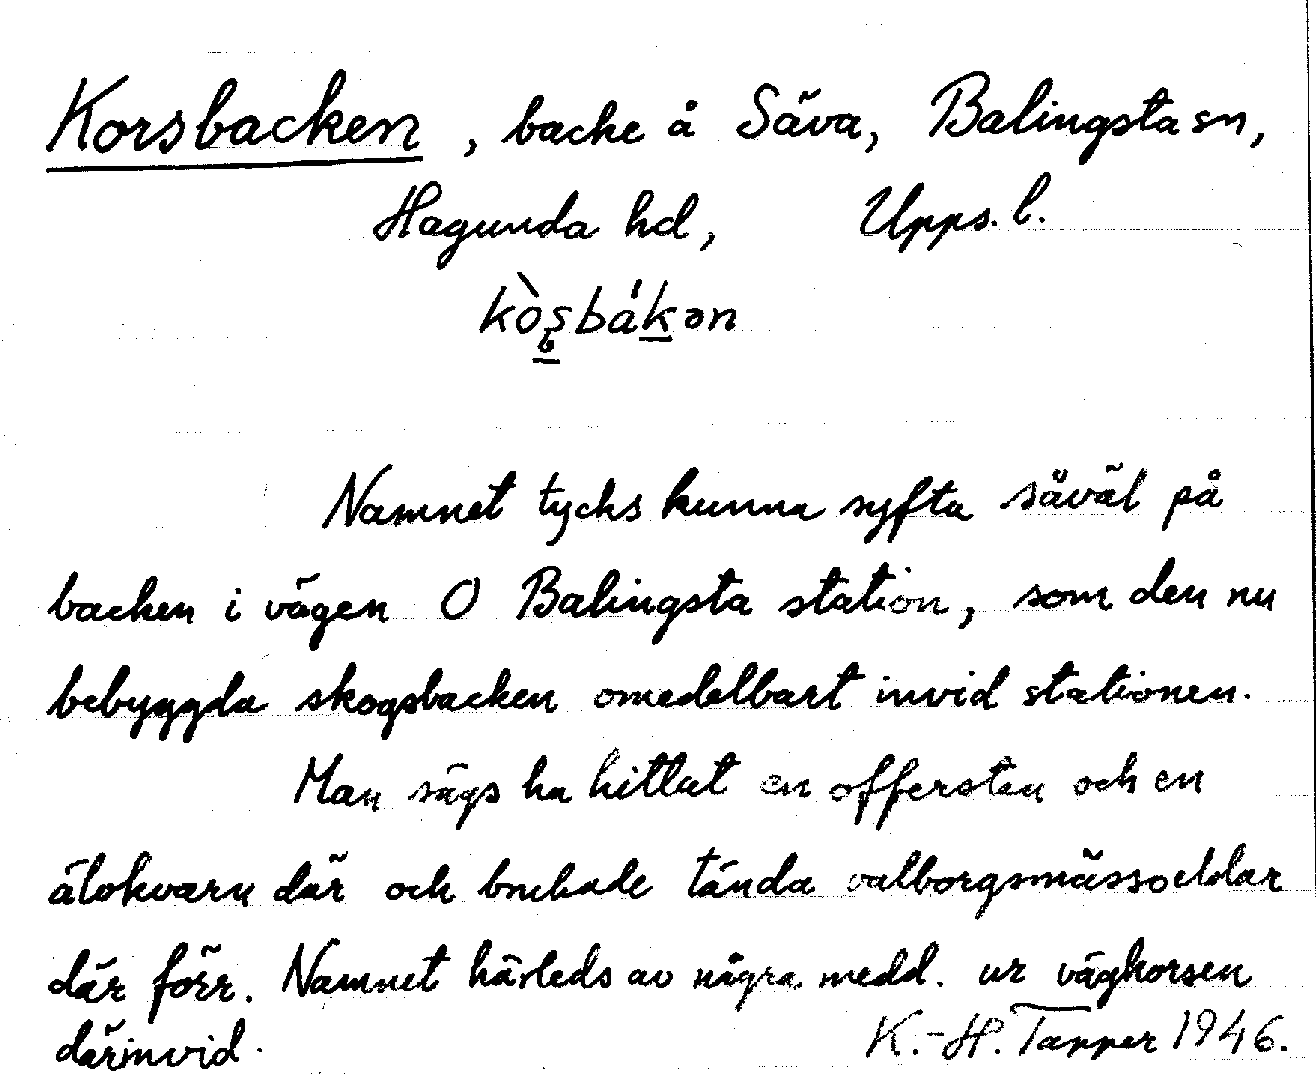 Korsbacken, backe å Säva, Balingsta sn,
Hagunda hd, Upps. l.
kòşbák̲ən
Namnet tycks kunna syfta såväl på
backen i vägen O Balingsta station, som den nu
bebyggda skogsbacken omedelbart invid stationen.
Man sägs ha hittat en offersten och en
älvkvarn där och brukade tända valborgsmässoeldar
där förr. Namnet härleds av några medd. ur vägkorsen
därinvid. K.-H. Tapper 1946.